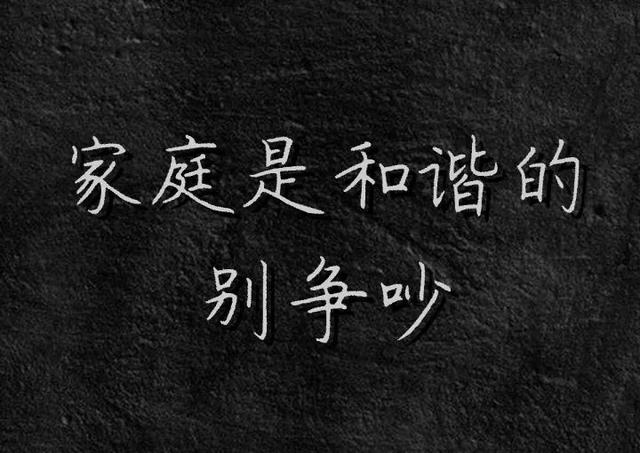 家庭是和谐的
别争吵